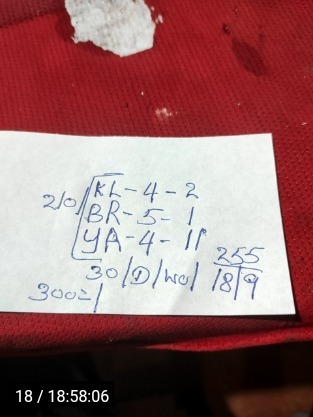 KL-4-2
210 BR-5-1
YA-4-11
30/D/wo/ 255
300=/ 18/9
18 / 18:58:06